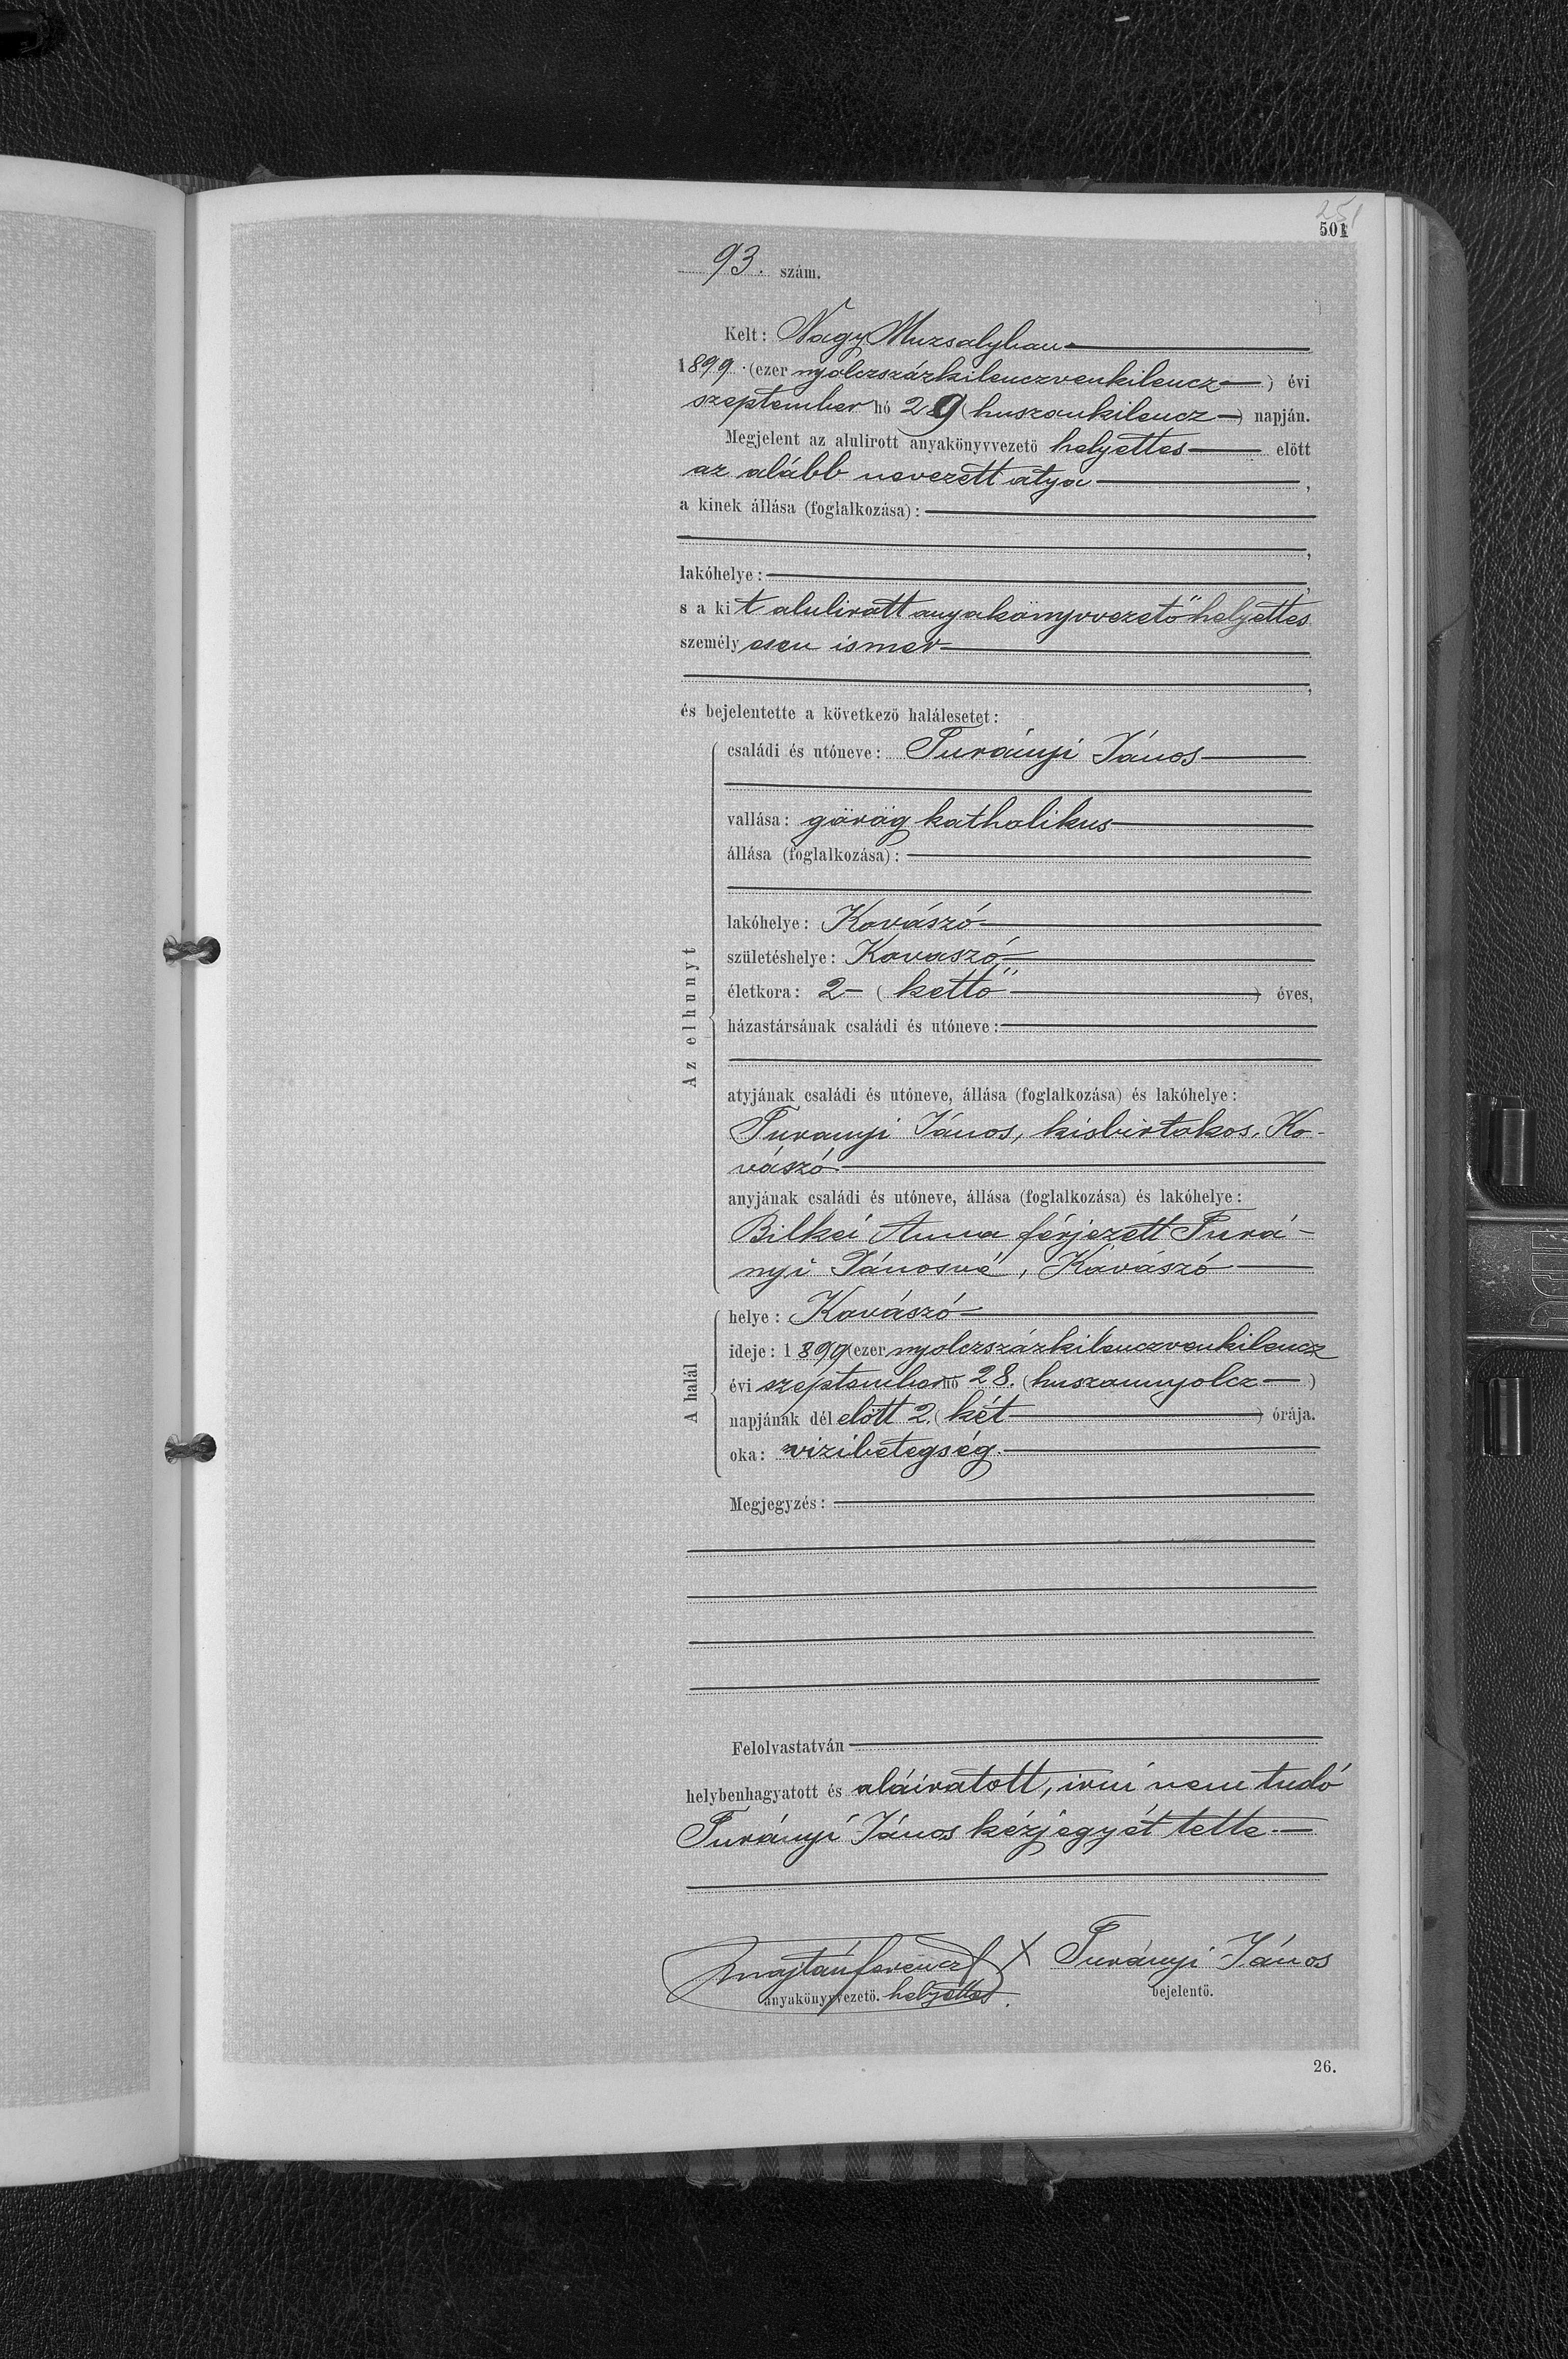 251
501
93. szám.
Kelt: Nagy Muzsalyban
1899. (ezer nyolczszázkilenczvenkilencz) évi
szeptember hó 29 (huszonkilencz) napján.
Megjelent az alulirott anyakönyvvezető helyettes előtt
az alább nevezett atya,
a kinek állása (foglalkozása):
,
lakóhelye: ,
s a kit alulirott anyakönyvvezető helyettes
személyesen ismer
,
és bejelentette a következő halálesetet:
Az elhunyt
családi és utóneve: Turányi János
vallása: görög katholikus
állása (foglalkozása):
lakóhelye: Kovászó
születéshelye: Kovaszó
életkora: 2 – (kettő) éves,
házastársának családi és utóneve:
atyjának családi és utóneve, állása (foglalkozása) és lakóhelye:
Turanyi János, kisbirtokos, Ko-
vászó
anyjának családi és utóneve, állása (foglalkozása) és lakóhelye:
Bilkei Anna férjezett Turá-
nyi Jánosné, Kovászó
A halál
helye: Kovászó
ideje: 1899 (ezer nyolczszázkilenczvenkilencz)
évi szeptember hó 28. (huszonnyolcz)
napjának dél előtt 2. (két) órája.
oka: vizibetegség.
Megjegyzés:
Felolvastatván
helybenhagyatott és aláiratott, irni nem tudó
Turányi János kézjegyét tette.
Majtán Ferencz X Turányi János
anyakönyvvezető. helyettes. bejelentő.
26.